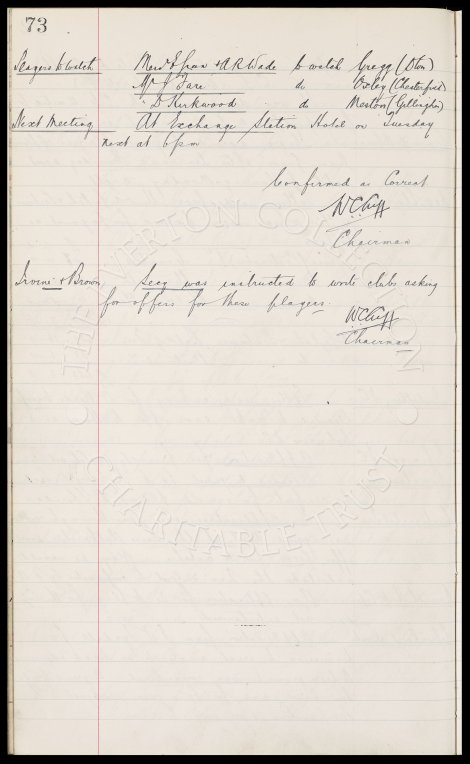 73
Players to Watch Messrs E Green & A R Wade to watch Gregg (Oton)
Mr J Fare do Oxley (Chesterfield)
" D Kirkwood do Meston (Gillingham)
Next Meeting At Exchange Station Hotel on Tuesday
next at 6 pm
Confirmed as Correct
W C Cuff
Chairman
Irvine & Brown Secy was instructed to write clubs asking
for offers for these players.
W C Cuff
Chairman
THE EVERTON COLLECTION
CHARITABLE TRUST